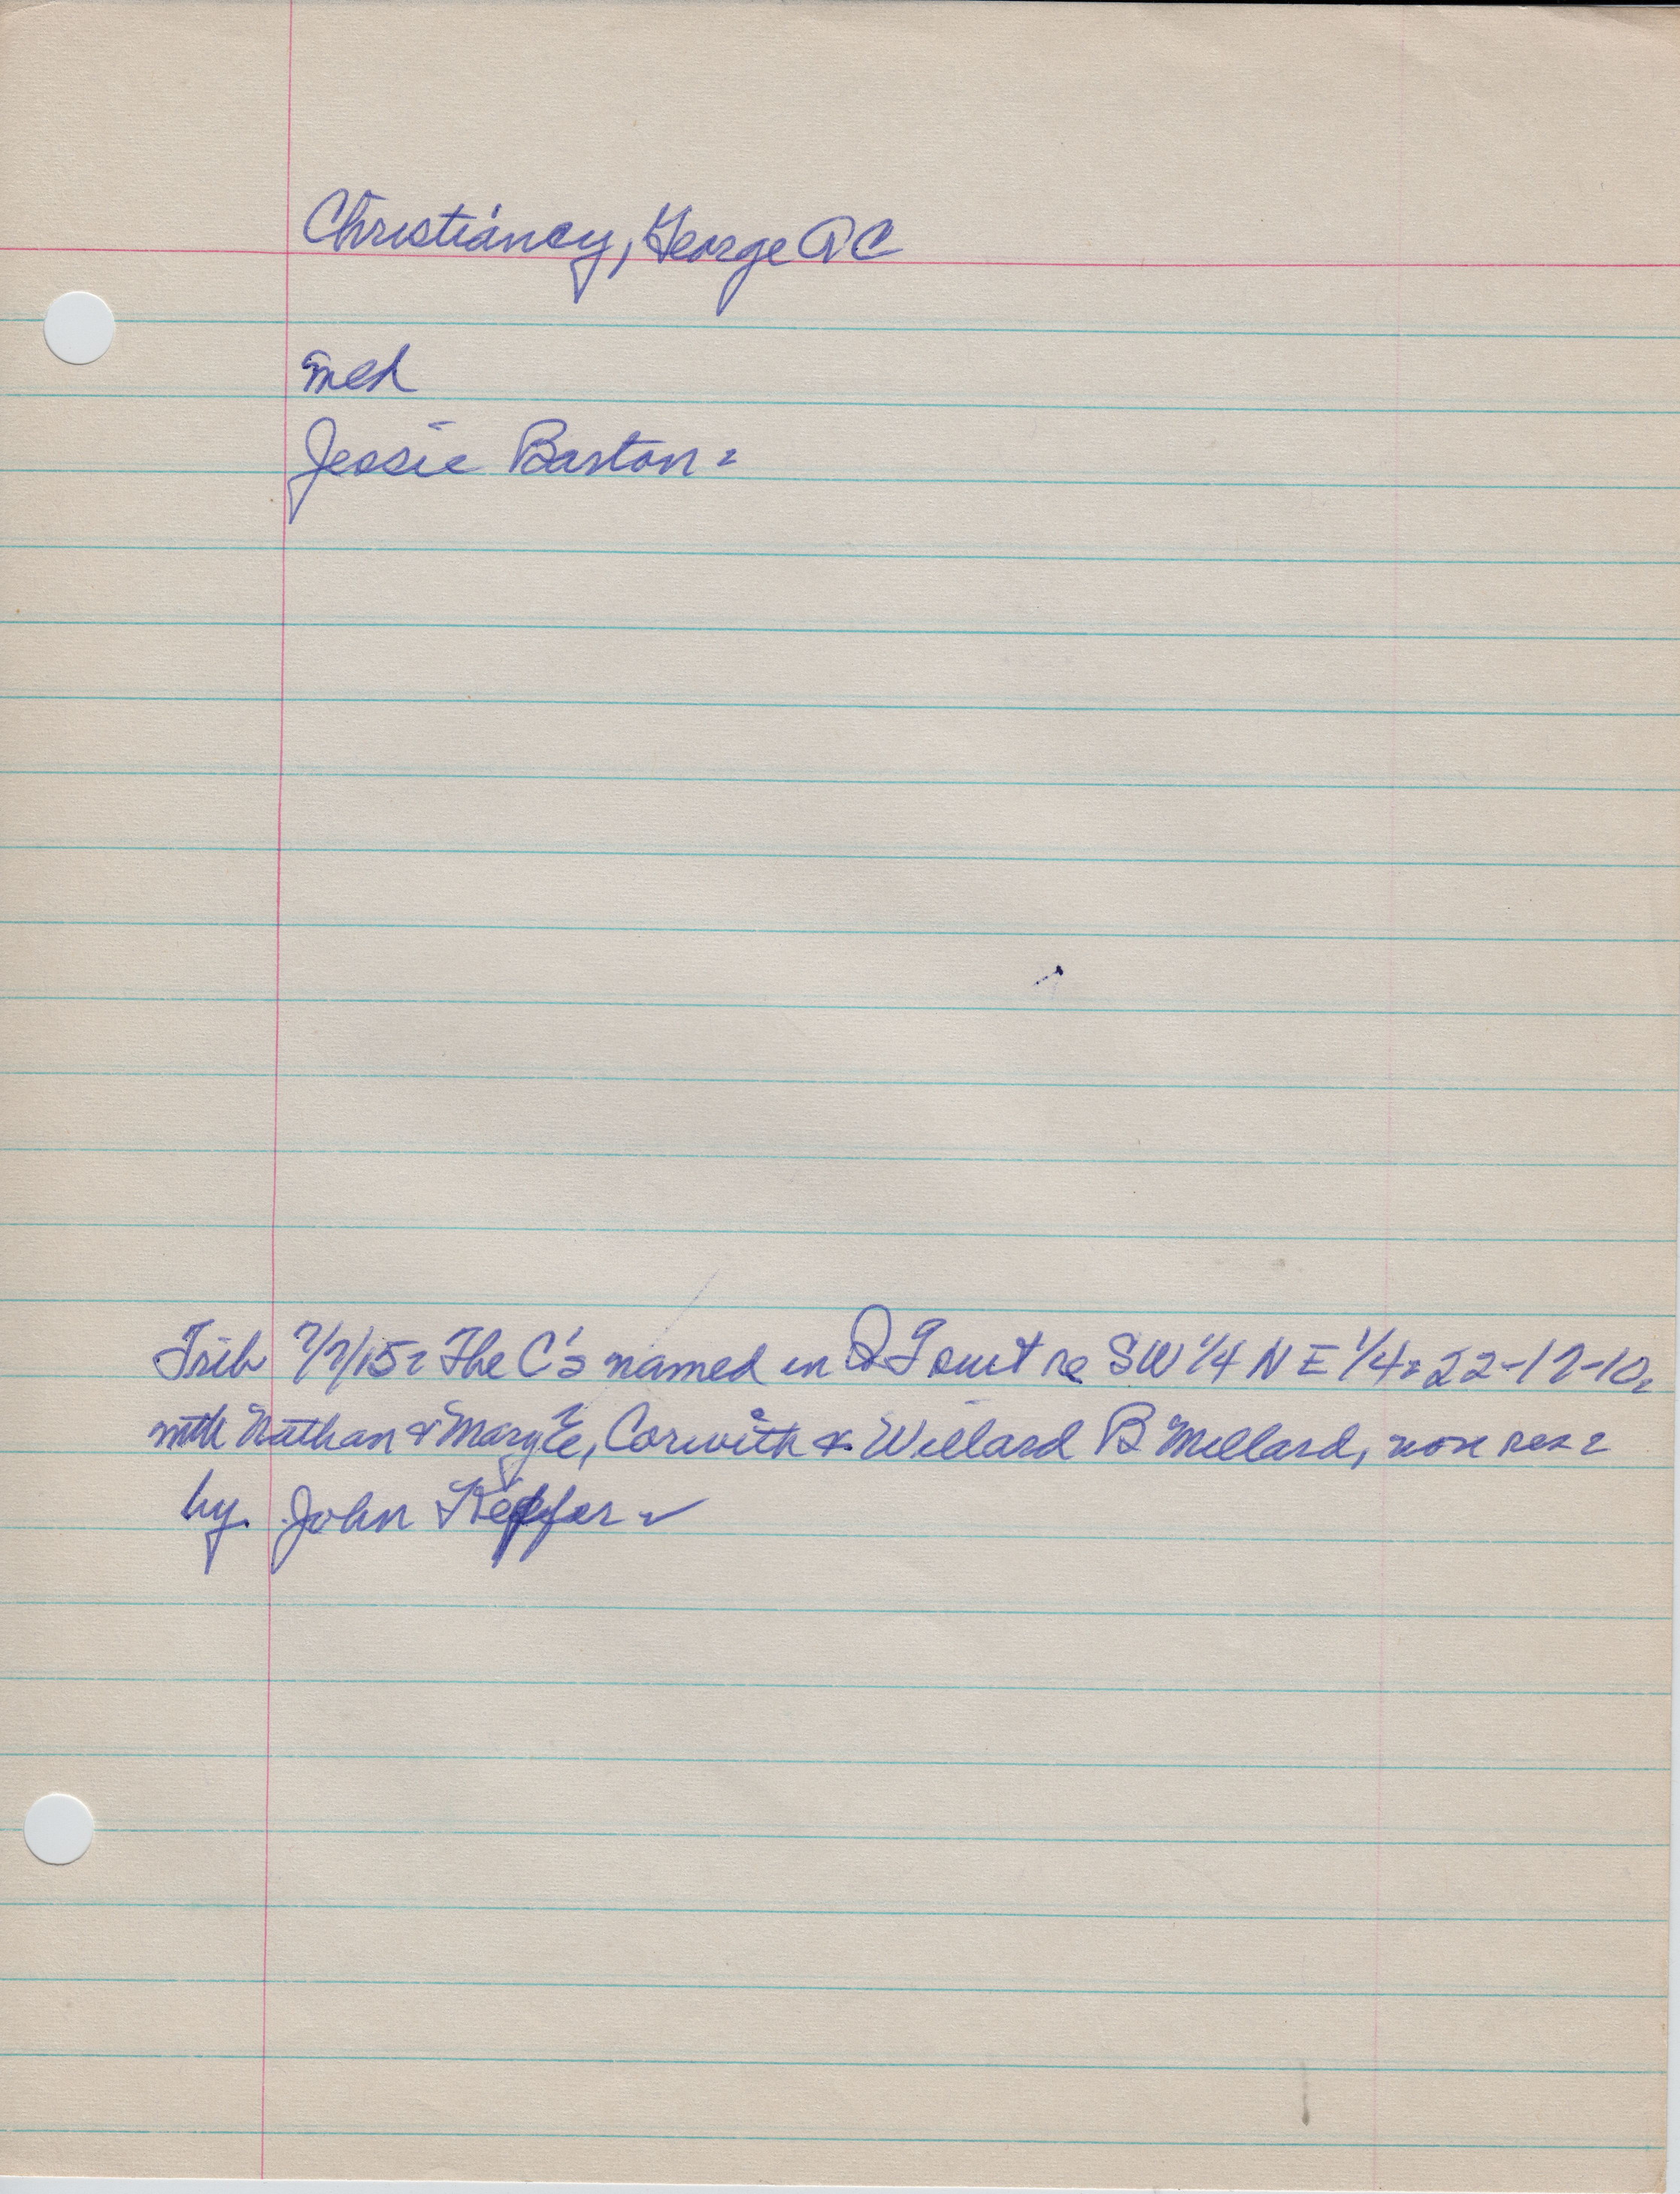 Christiáncy, George A C
med
Jessie Barton.
Trib 7/7/15. The C's named in QT suit re SW 1/4 NE 1/4. 22-17-10.
with Nathan & Mary E, Corwith & Willard B Millard, non res.
by. John Kepfer.